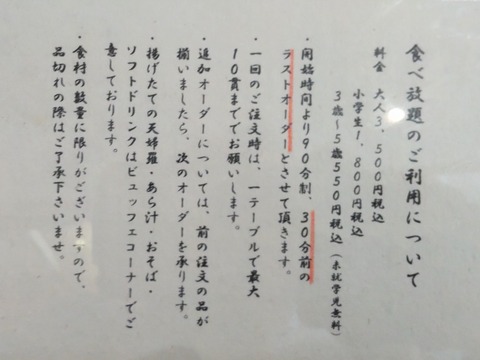 食べ放題のご利用について
料金　大人3,500円税込
小学生1,800円税込
3歳～5歳550円税込（未就学児無料）
・開始時間より90分制、30分前の
ラストオーダーとさせて頂きます。
・一回のご注文時は、一テーブルで最大
10貫まででお願いします。
・追加オーダーについては、前の注文の品が
揃いましたら、次のオーダーを承ります。
・揚げたての天婦羅・あら汁・おそば・
ソフトドリンクはビュッフェコーナーでご
意しております。
・食材の数量に限りがございますので、
品切れの際はご了承下さいませ。